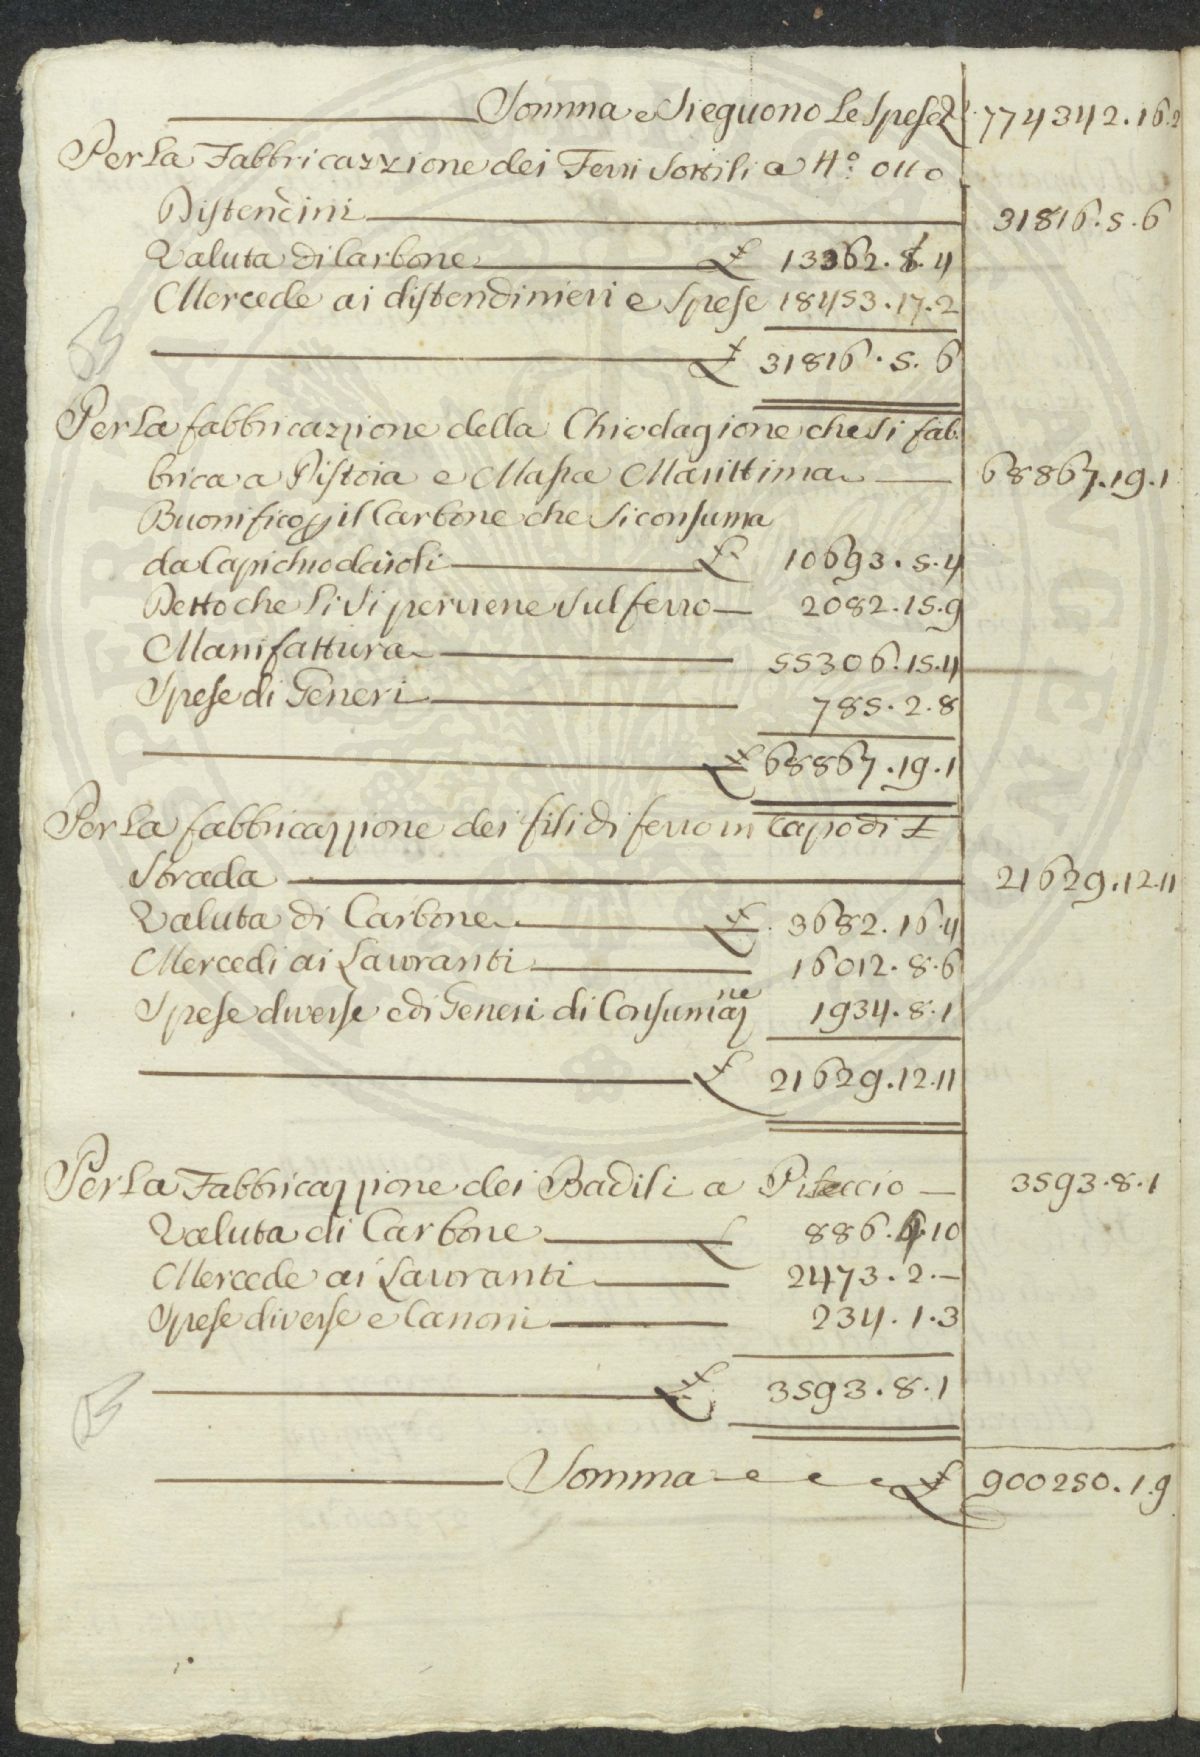 Somma e Sieguono le Spese £ 774342.16.2
Per la Fabbricazzione dei Ferri Sottili a N:º otto
Distendini 31816.5.6
Valuta di Carbone £ 13362.8.4
Mercede ai distendinieri e Spese 18453.17.2
£ 31816.5.6
Per la fabbricazzione della Chiodagione che si fab=
brica a Pistoia e Massa Marittima 68867.19.1
Buonifico p il Carbone che si consuma
da Capichiodaioli £ 10693.5.4
Detto che li si perviene sul ferro 2082.15.9
Manifattura 55306.15.4
Spese di Generi 785.2.8
£ 68867.19.1
Per la fabbricazzione dei fili di ferro in Capo di
Strada 21629.12.11
Valuta di Carbone £ 3682.16.4
Mercedi ai Lavoranti 16012.8.6
Spese diverse e di Generi di Consumaz.ne 1934.8.1
£ 21629.12.11
Per la Fabbricazzione dei Badili a Piteccio 3593.8.1
Valuta di Carbone £ 886.4.10
Mercede ai Lavoranti 2473.2.—
Spese diverse e Canoni 234.1.3
£ 3593.8.1
Somma £ 900250.1.9